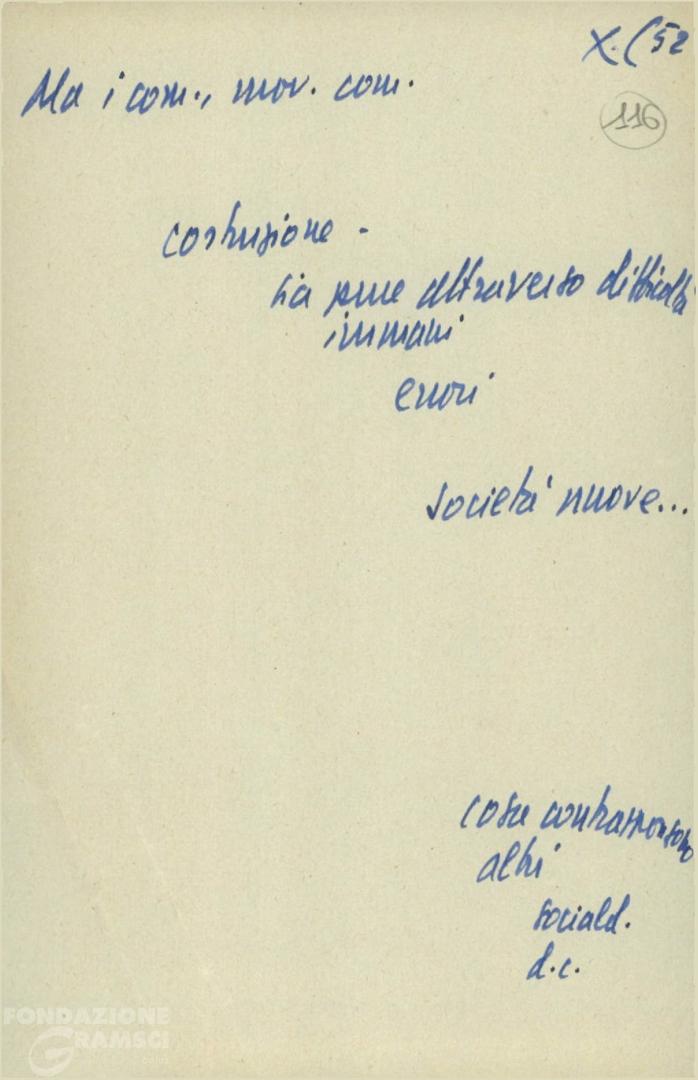 X. (52
Ma i com., mov. com.
116
costruzione -
sia pure attraverso difficoltà
immani
errori
società nuove...
cosa contrappongono
altri
sociald.
d.c.
FONDAZIONE
GRAMSCI